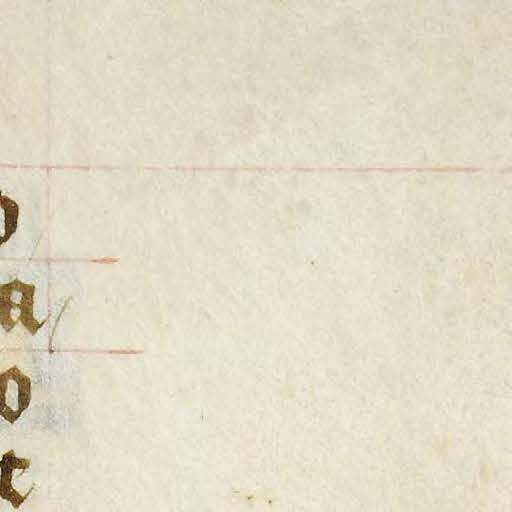 a
o
t